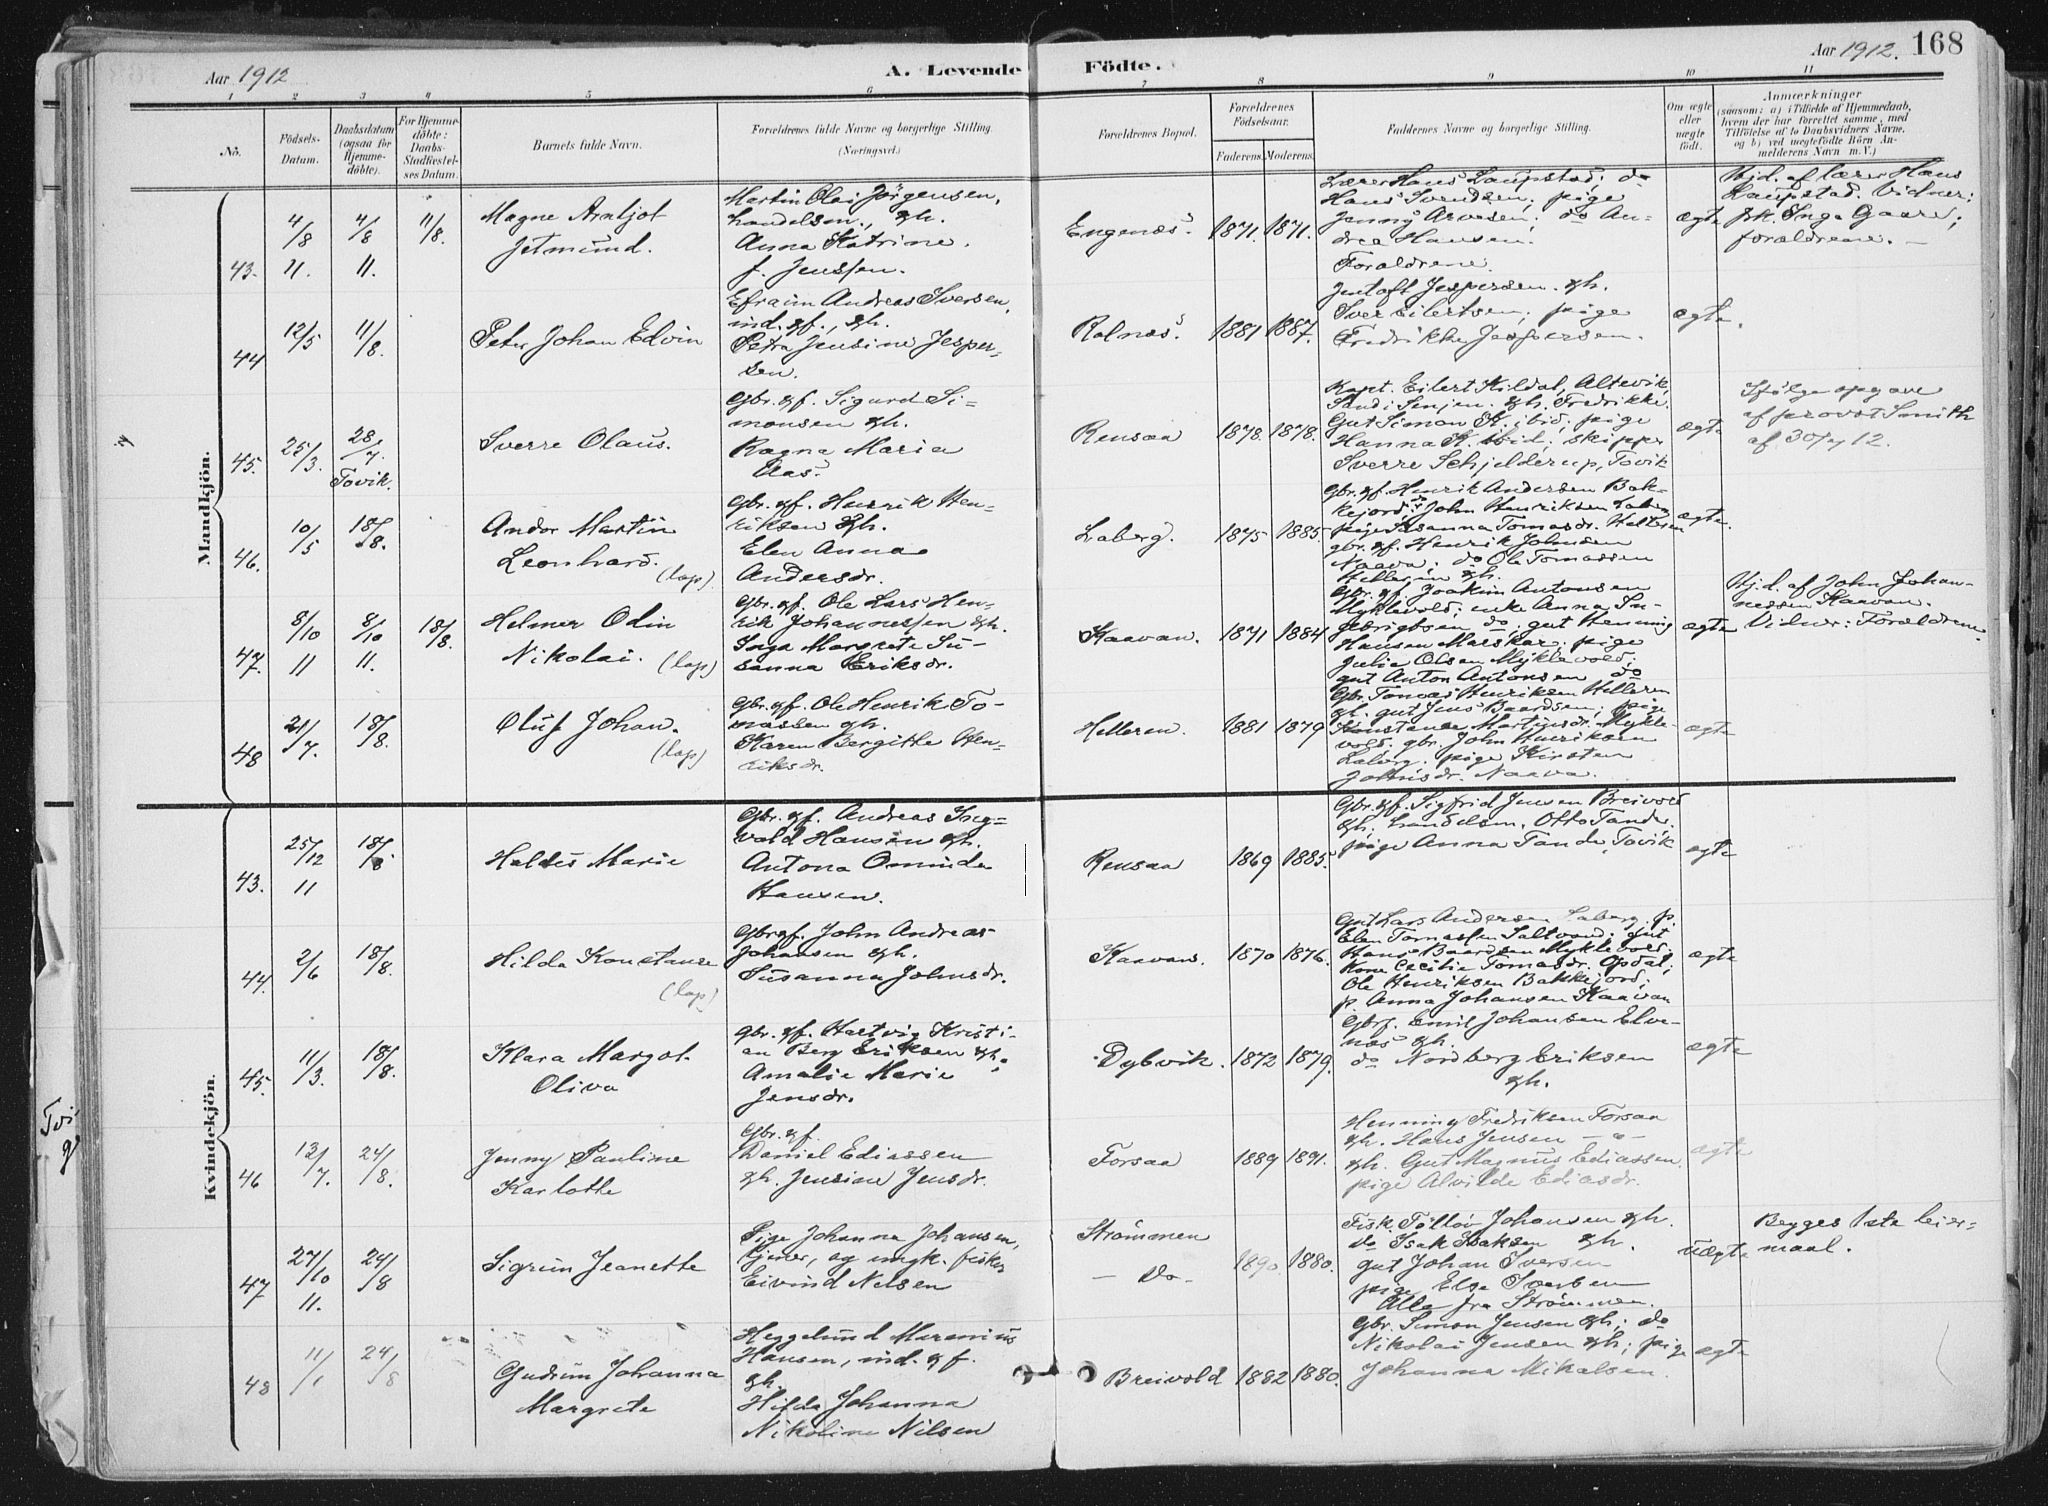 Aar 1912
A. Levende Födte.
Aar 1912. 168
1 2 3 4 5 6 7 8 9 10 11
No.
Födsels-Datum.
Daabsdatum (ogsaa for Hjemme-döbte).
For Hjemme-döbte: Daabs-Stadfæstel-ses Datum.
Barnets fulde Navn.
Forældrenes fulde Navne og borgerlige Stilling.
(Næringsvei.)
Forældrenes Bopæl.
Forældrenes Födselsaar.
Faderens. Moderens.
Faddernes Navne og borgerlige Stilling.
Om ægte eller uægte födt.
Anmærkninger
(saasom: a) i Tilfælde af Hjemmedaab, hvem der har forrettet samme, med Tilföielse af to Daabsvidners Navne, og b) ved uægtefödte Börn An-melderens Navn m. V.)
Mandkjön.
43. 4/8 11. 4/8 11. 11/8.
Magne Arnljot
Jetmund.
Martin Olai Jörgensen,
handelsm., gh.
Anna Katrine
f. Jenssen.
Engenæs. 1871. 1871.
Lærer Hans Laupstad; do
Hans Svendsen; pige
Jenny Arvesen; do An-
drea Hansen.
Forældrene.
ægte
Hjd. af lærer Hans
Laupstad. Vidner:
frk. Inga Gaare,
forældrene. —
44 12/5 11/8.
Peter Johan Edvin
Efraim Andreas Iversen,
ind. gf., gh.
Petra Jensine Jesper-
sen.
Rolnæs. 1881 1887.
Jentoft Jespersen. gh.
Iver Eilertsen; pige
Fredrikke Jespersen.
ægte.
45. 25/3. 28/7. Tovik.
Sverre Olaus.
Gbr. gf. Sigurd Si-
monsen gh.
Ragna Maria
Aas.
Rensaa 1878. 1878.
Kapt. Eilert Kildal, Altevik,
Sand i Senjen. gh. Fredrikke.
Gut Simon K. ibid; pige
Hanna K. ibid; skipper
Sverre Schjelderup, Tovik
ægte
Ifölge opgave
af provst Smith
af 30/7 12.
46. 10/5 18/8.
Andor Martin
Leonhard. (lap).
Gbr. gf. Henrik Hen-
riksen gh.
Elen Anna
Andersdr.
Laberg. 1875 1885.
Gbr. gf. Henrik Andersen Bak-
kejord; do John Henriksen Laberg
pige Susanna Tomasdr. Helleren
gbr. gf. Henrik Johnsen
Naava; do Ole Tomassen
Helleren gh.
ægte.
47. 8/10 11 8/10 11. 18/8.
Helmer Odin
Nikolai. (lap)
Gbr. gf. Ole Lars Hen-
rik Johannessen gh.
Inga Margrete Su-
sanna Eriksdr.
Kaavan. 1871 1884
Gbr. gf. Joakim Antonsen
Myklevold; enke Anna In-
gebrigtsen do; gut Henning
Hansen Maiskar; pige
Julie Olsen Myklevold;
gut Anton Antonsen do
ægte
Hjd. af John Johan-
nessen Kaavan.
Vidner: Forældrene.
48 21/7. 18/8.
Oluf Johan.
(lap)
Gbr. gf. Ole Henrik To-
massen gh.
Karen Bergitte Hen-
riksdr.
Helleren. 1881 1879
Gbr. Tomas Henriksen Helleren
gh. gut Jens Baardsen; pige
Konstanse Martinsdr. Mykle-
vold; gbr. John Henriksen
Laberg; pige Kirsten
Johnsdr. Naava.
ægte
Kvindekjön.
43. 25/12 11 18/8
Haldis Marie
Gbr. gf. Andreas Ing-
vald Hansen gh.
Antona Ominda
Hansen.
Rensaa 1869 1885.
Gbr. gf. Sigfrid Jensen Breivold
gh; handelsm. Otto Tande;
pige Anna Tande, Tovik
ægte
44. 2/6 18/8.
Hilda Konstanse
(lap)
Gbr gf. John Andreas
Johansen gh.
Susanna Johnsdr.
Kaavan. 1870 1876.
Gut Lars Andersen Laberg. p.
Elen Tomassen Saltvand; gut
Hans Baardsen Myklevold;
Kone Cecilie Tomasdr. Opdal;
Ole Henriksen Bakkejord;
p. Anna Johansen Kaavan
ægte
45. 11/3. 18/8.
Klara Margot
Oliva
Gbr. gf. Hartvig Kristi-
an Berg Eriksen gh.
Amalie Marie
Jensdr.
Dybvik. 1872 1879.
Gbr. Emil Johansen Elve-
næs gh.
do Nordberg Eriksen
gh.
ægte
46 13/7. 24/8.
Jenny Pauline
Karlotte
Gbr. gf.
Daniel Ediassen
gh. Jensine Jensdr.
Forsaa 1889 1891.
Henning Fredriksen Forsaa
gh. Hans Jensen — " —
gh. Gut Magnus Ediassen.
pige Alvilde Ediasdr.
ægte
47 27/10 11. 24/8
Sigrun Jeanette
Pige Johanna Johansen,
tjener, og ungk. fisker
Eivind Nelsen
Strömmen
— Do — 1890. 1880.
Fisk. Tollöv Johansen gh.
do Isak Isaksen gh.
gut Johan Iversen
pige Else Iversen
Alle fra Strömmen.
uægte
Begges 1ste leier-
maal.
48 11/1 24/8
Gudrun Johanna
Margrete
Heggelund Marenius
Hansen, ind. gf.
gh.
Hilda Johanna
Nikoline Nilsen
Breivold 1882 1880.
Gbr. Simon Jensen gh; do
Nikolai Jensen gh; pige
Johanna Mikalsen.
ægte